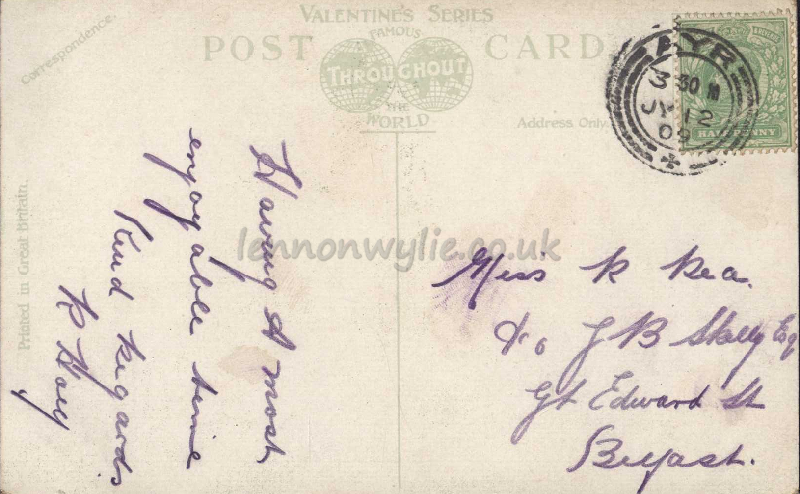 Correspondence.
VALENTINE'S SERIES
POST CARD
FAMOUS
THROUGHOUT
THE
WORLD
Address Only.
AYR
3 30 M
JY 12
09
HALFPENNY
Printed in Great Britain.
Having A most
enjoyable time
Kind Regards
R Hoey
lennonwylie.co.uk
Miss R Rea.
c/o J B Skelly Esq
Gt Edward St
Belfast.